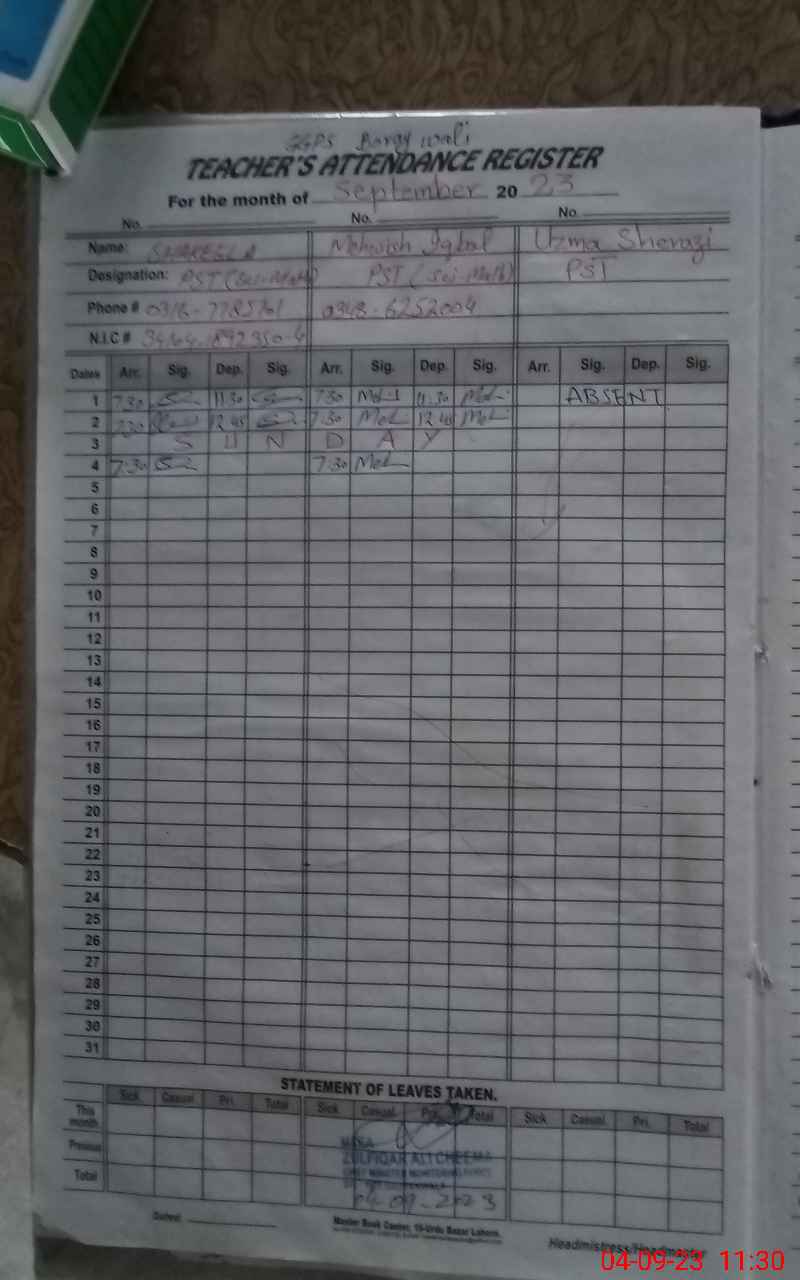 GGPS Bargy wali
TEACHER'S ATTENDANCE REGISTER
For the month of September 20 23
No. No. No.
Name: SHAKEELA Mehwish Iqbal Uzma Sherazi
Designation: PST (Sci-Math) PST (Sci-Math) PST
Phone # 0316-7785761 0348-6252004
N.I.C #
Dates Arr. Sig. Dep. Sig. Arr. Sig. Dep. Sig. Arr. Sig. Dep. Sig.
1 7:30 11:30 7:30 11:30 ABSENT
2 7:30 12:45 7:30 12:45
3 S U N D A Y
4 7:30 7:30
5
6
7
8
9
10
11
12
13
14
15
16
17
18
19
20
21
22
23
24
25
26
27
28
29
30
31
STATEMENT OF LEAVES TAKEN.
Sick Casual Pri. Total Sick Casual Pri. Total Sick Casual Pri. Total
This month
Previous
Total
ZULFIQAR ALI CHEEMA
04-09-2023
Master Book Center, 19-Urdu Bazar Lahore.
Headmistress/Headmaster
04-09-23 11:30